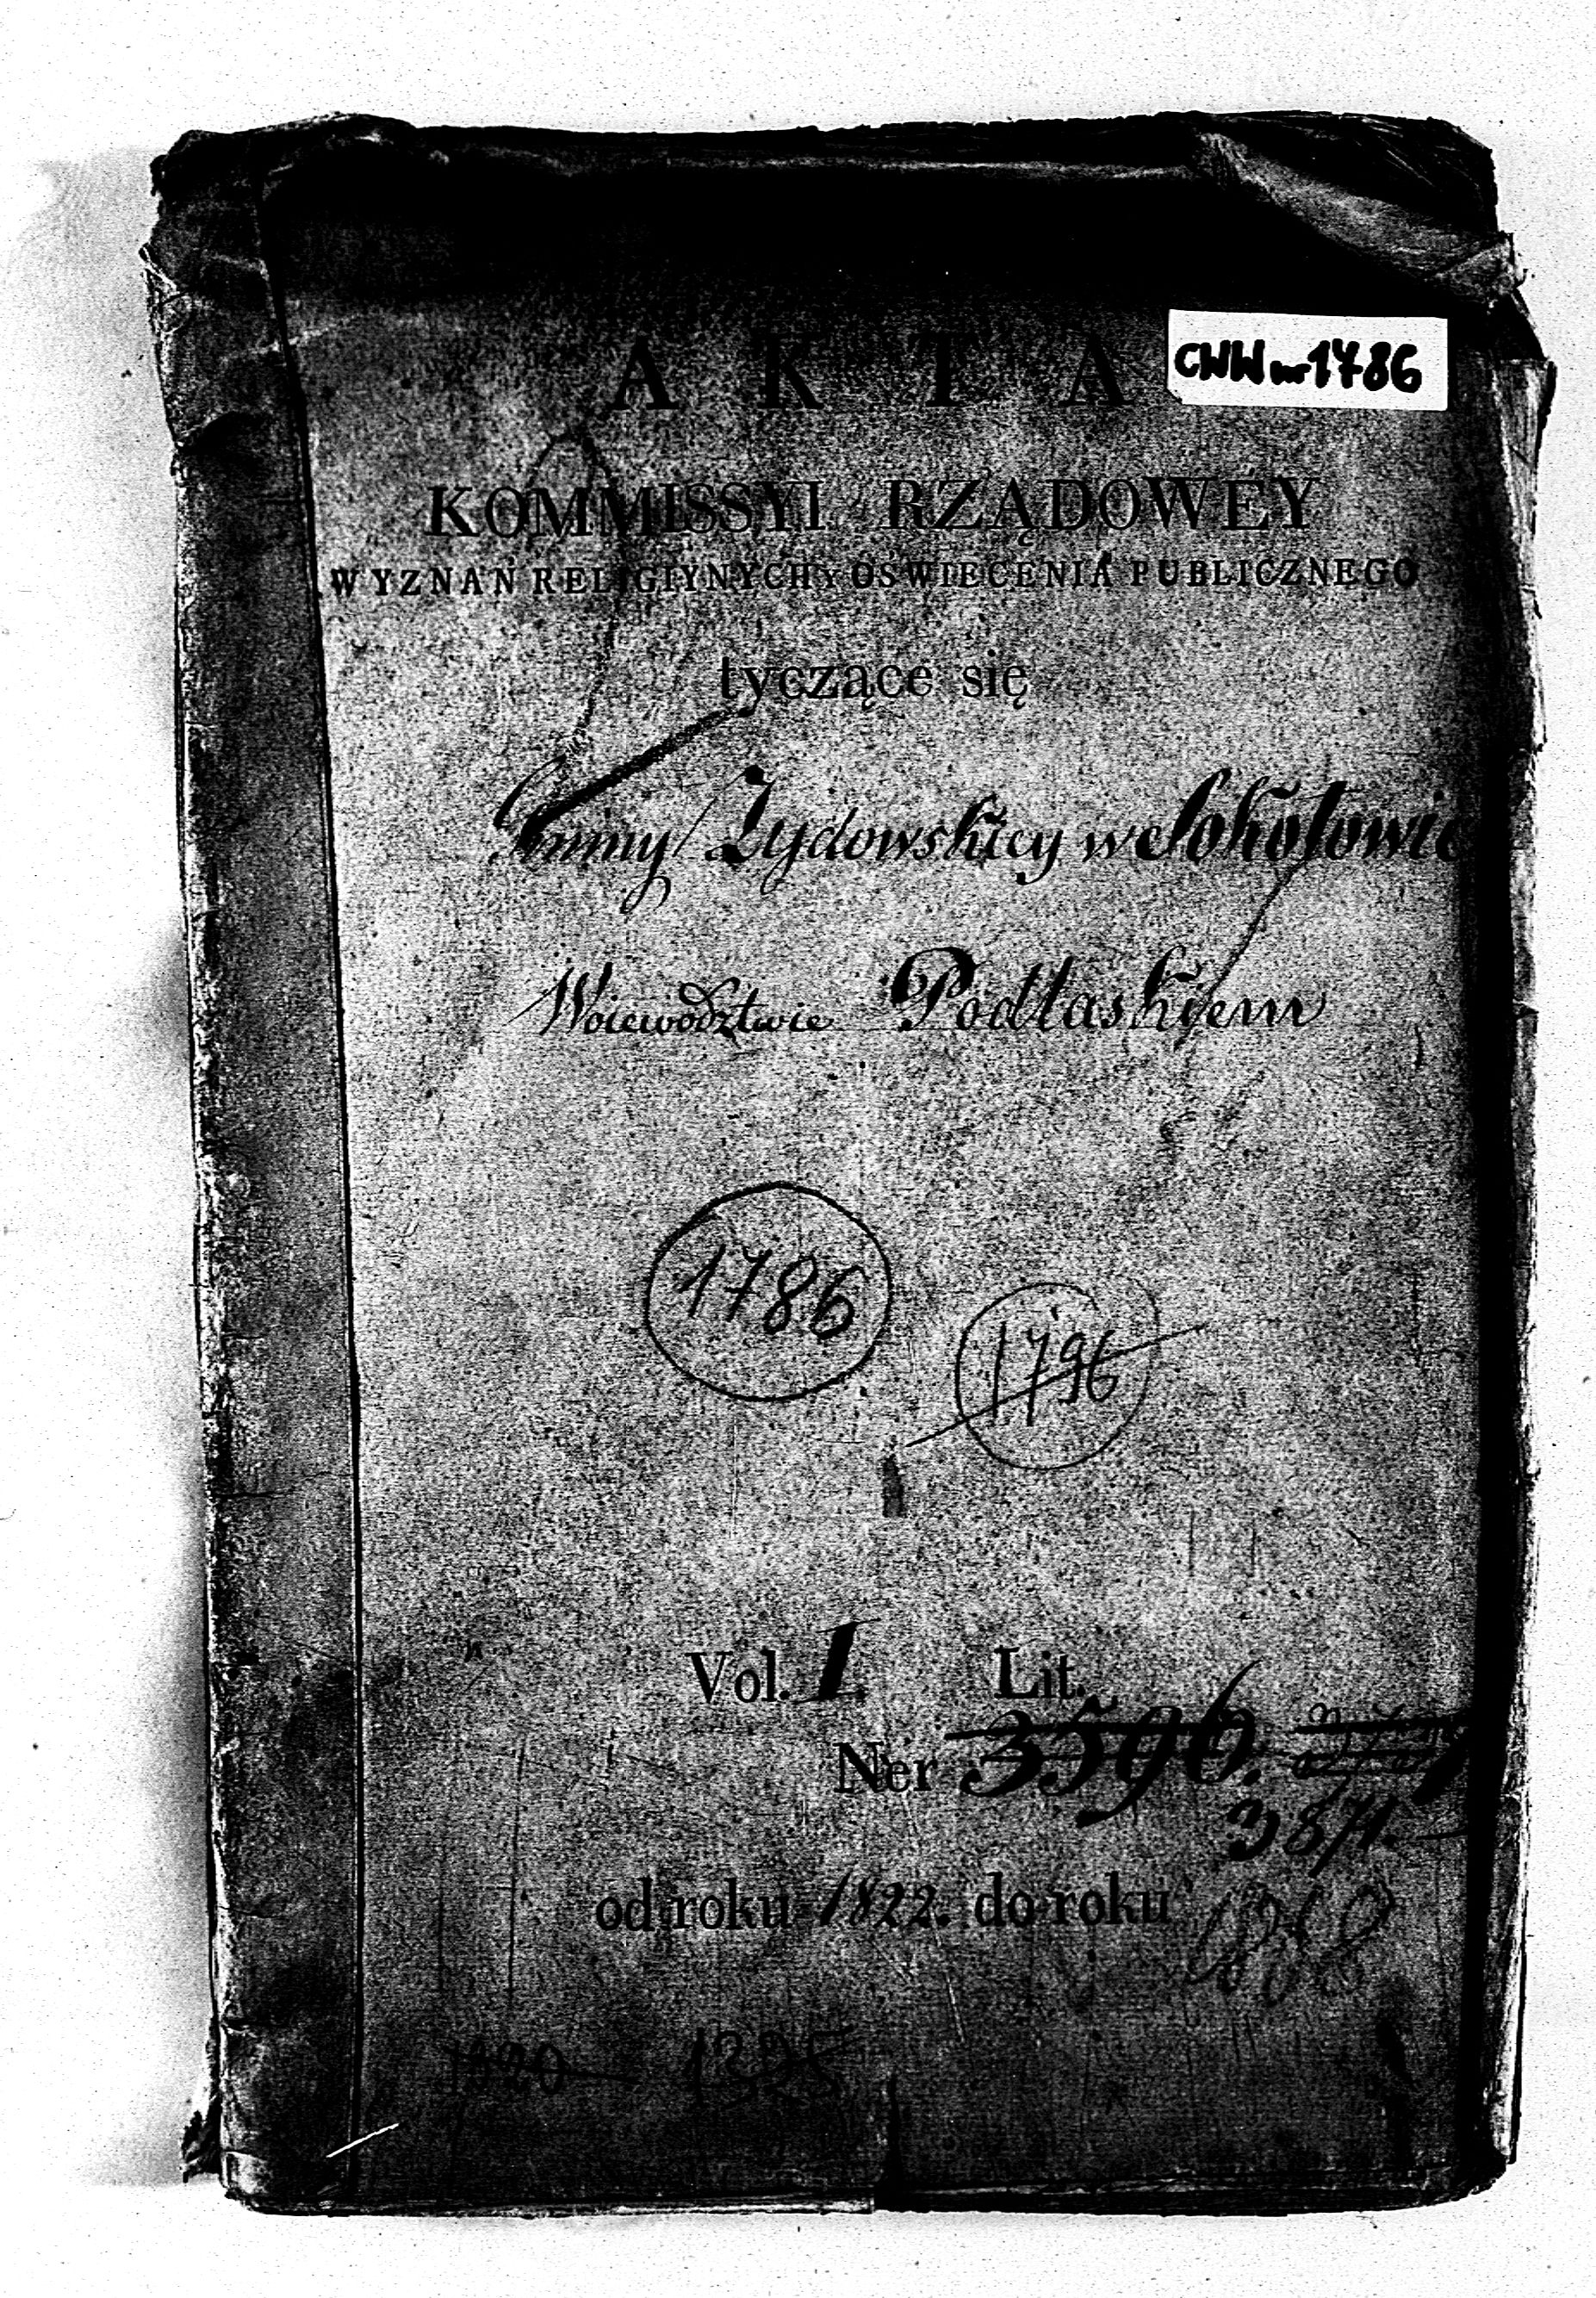 AKTA
CWW nr 1786
KOMMISSYI RZĄDOWEY
WYZNAŃ RELIGIYNYCH Y OŚWIECENIA PUBLICZNEGO
tyczące się
Gminy Żydowskiey w Sokołowie
Woiewództwie Podlaskiem
1786
1796
Vol. I. Lit.
Ner 3596.
3871.
od roku 1822. do roku
1320 1325